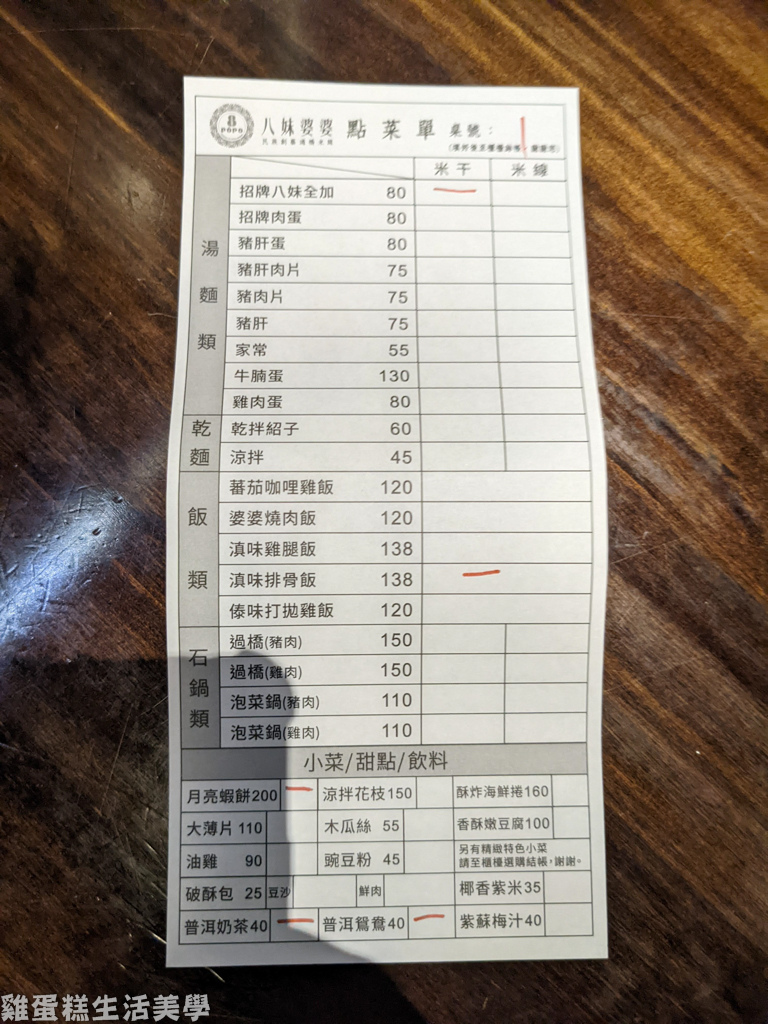 8
PÓPO
八妹婆婆 點菜單 桌號：
米干 米線
湯麵類
招牌八妹全加 80 一
招牌肉蛋 80
豬肝蛋 80
豬肝肉片 75
豬肉片 75
豬肝 75
家常 55
牛腩蛋 130
雞肉蛋 80
乾麵
乾拌紹子 60
涼拌 45
飯類
蕃茄咖哩雞飯 120
婆婆燒肉飯 120
滇味雞腿飯 138
滇味排骨飯 138 一
傣味打拋雞飯 120
石鍋類
過橋(豬肉) 150
過橋(雞肉) 150
泡菜鍋(豬肉) 110
泡菜鍋(雞肉) 110
小菜/甜點/飲料
月亮蝦餅200 一 涼拌花枝150 酥炸海鮮捲160
大薄片 110 木瓜絲 55 香酥嫩豆腐100
油雞 90 豌豆粉 45 另有精緻特色小菜
請至櫃檯選購結帳，謝謝。
破酥包 25 豆沙 鮮肉 椰香紫米35
普洱奶茶40 一 普洱鴛鴦40 一 紫蘇梅汁40
雞蛋糕生活美學